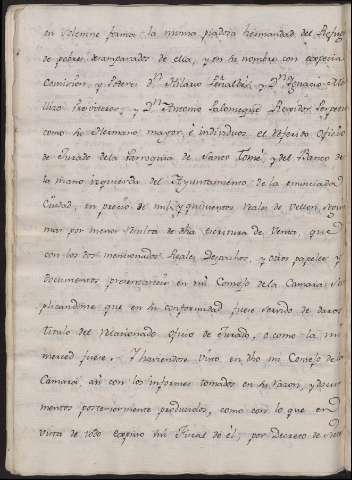 en solemne forma: la misma piadosa hermandad del Refugio
de pobres desamparados de ella, y en su nombre con especial
Comision, y Poderes Dn. Hilario Peñalba, y Dn. Ignacio
Presviteros, y Dn. Antonio Palomeque Regidor Perpetuo
como su Hermano mayor, é individuos, el referido Oficio
de Jurado dela Parroquia de Santo Tomé, y del Banco de
la mano izquierda del Ayuntamiento de la enunciada
Ciudad, en precio de mil, y quinientos reales de Vellon, segun
mas por menor resulta de dha escritura de Venta, que
con los dos mencionados Reales Despachos, y otros papeles y
documentos presentasteis en mi Consejo de la Camara: Su
plicandome que en su conformidad fuese servido de daros
titulo del relacionado oficio de Jurado, o como la mi
merced fuere. Y haviendose visto en dho mi Consejo de la
Camara, asi con los informes tomados en su razon, y docu
mentos posteriormente producidos, como con lo que en
vista de todo expuso mi Fiscal de él; por Decreto de